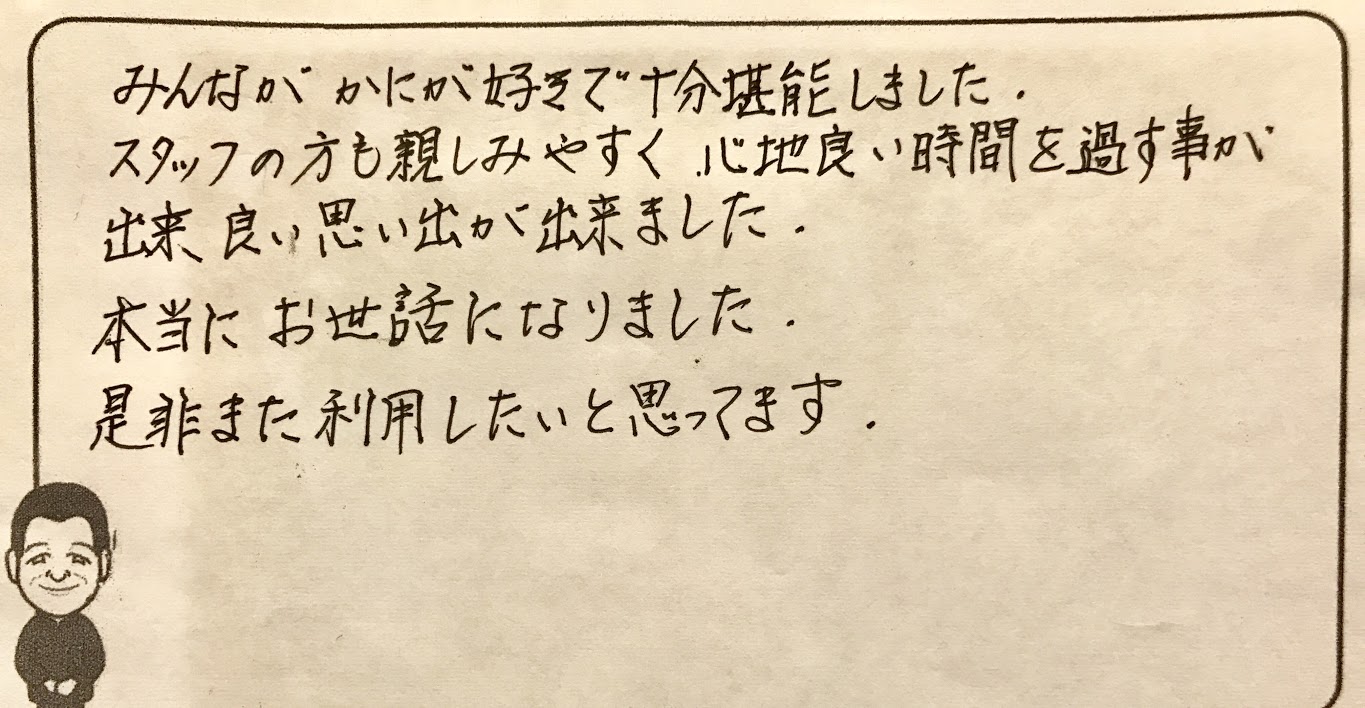 みんなが かにが好きで十分堪能しました.
スタッフの方も親しみやすく 心地良い時間を過す事が
出来 良い思い出が出来ました.
本当に お世話になりました.
是非また利用したいと思ってます.